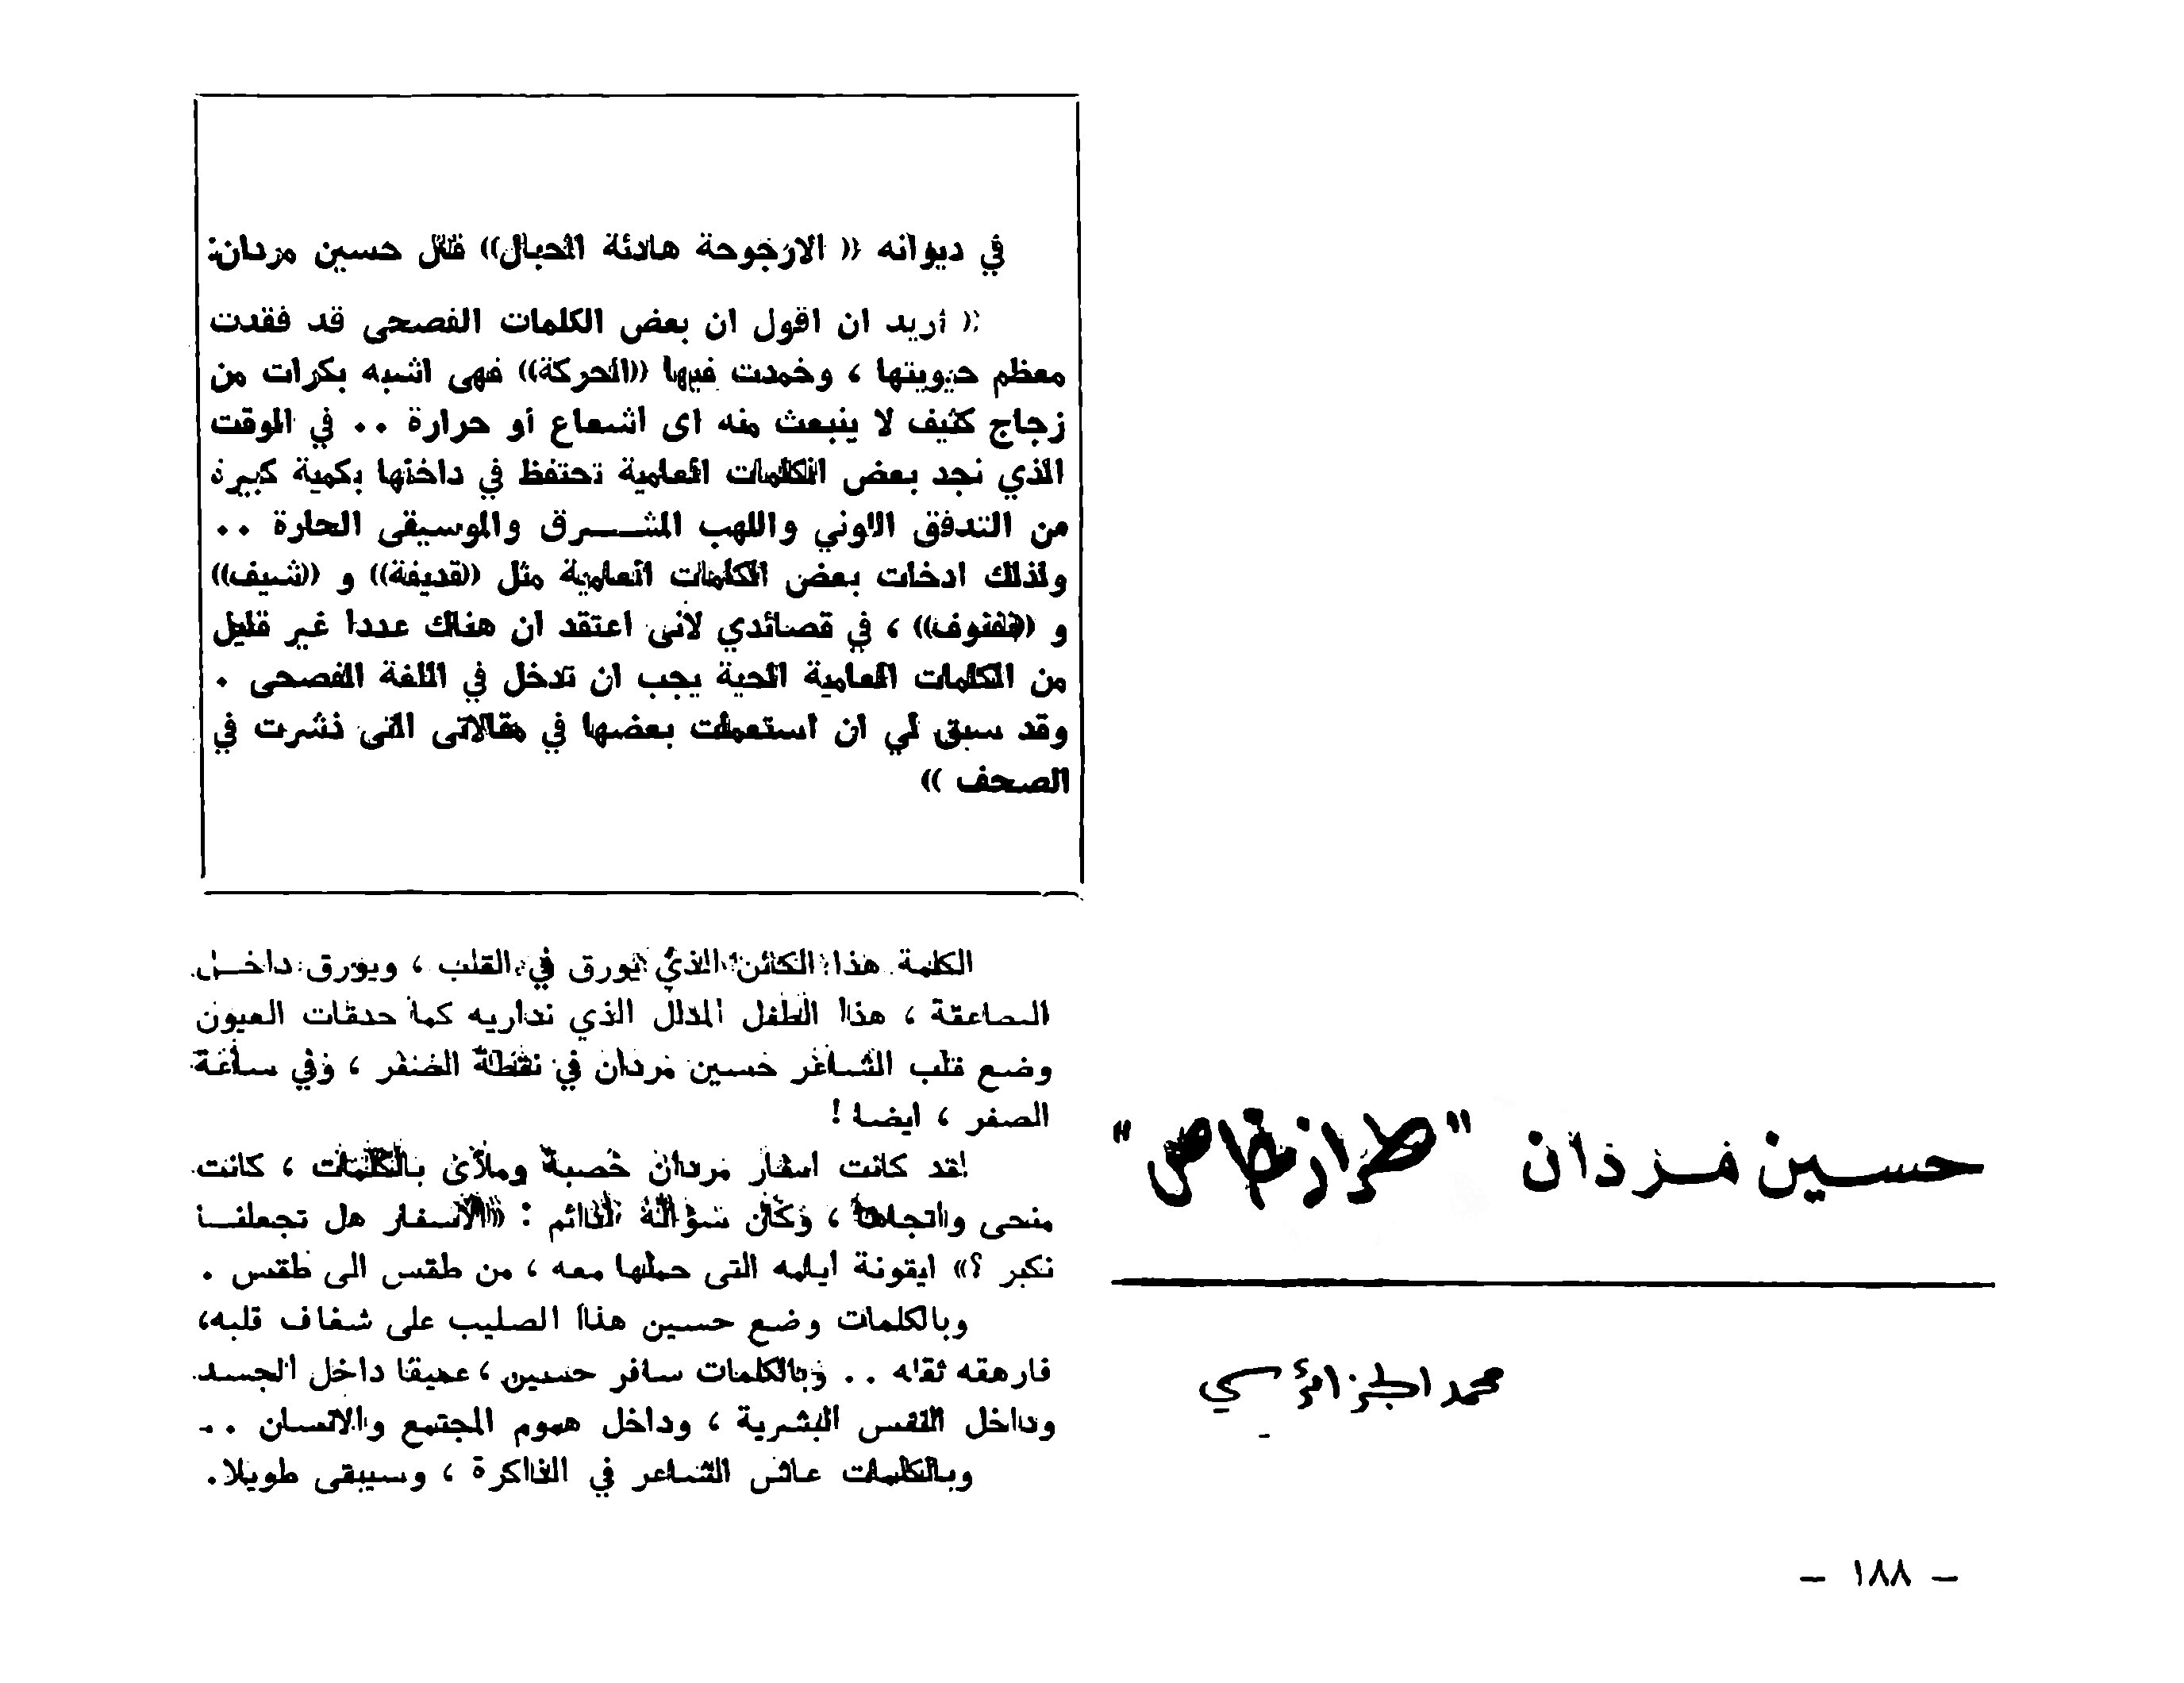 حسين مردان "طراز خاص"
محمد الجزائري
في ديوانه «الارجوحة هادئة الحبال» قال حسين مردان:
« اريد ان اقول ان بعض الكلمات الفصحى قد فقدت
معظم حيويتها ، وخمدت فيها «الحركة» فهى اشبه بكرات من
زجاج كثيف لا ينبعث منه اى اشعاع أو حرارة .. في الوقت
الذي نجد بعض الكلمات العامية تحتفظ في داخلها بكمية كبيرة
من التدفق اللوني واللهب المشرق والموسيقى الحارة ..
ولذلك ادخلت بعض الكلمات العامية مثل «قديفة» و «شيف»
و «نفنوف» ، في قصائدي لانى اعتقد ان هناك عددا غير قليل
من الكلمات العامية الحية يجب ان تدخل في اللغة الفصحى .
وقد سبق لي ان استعملت بعضها في مقالاتى التى نشرت في
الصحف »
الكلمة هذا الكائن الذي يورق في القلب ، ويورق داخل
الصاعقة ، هذا الطفل المدلل الذي نداريه كما حدقات العيون
وضع قلب الشاعر حسين مردان في نقطة الصفر ، وفي ساعة
الصفر ، ايضا !
لقد كانت اسفار مردان خصبة وملأى بالكلمات ، كانت
منحى واتجاها ، وكان سؤاله الدائم : «الأسفار هل تجعلنا
نكبر ؟» ايقونة ايامه التى حملها معه ، من طقس الى طقس .
وبالكلمات وضع حسين هذا الصليب على شغاف قلبه،
فارهقه ثقله .. وبالكلمات سافر حسين ، عميقا داخل الجسد
وداخل النفس البشرية ، وداخل هموم المجتمع والانسان ..
وبالكلمات عاش الشاعر في الذاكرة ، وسيبقى طويلا.
– ١٨٨ –